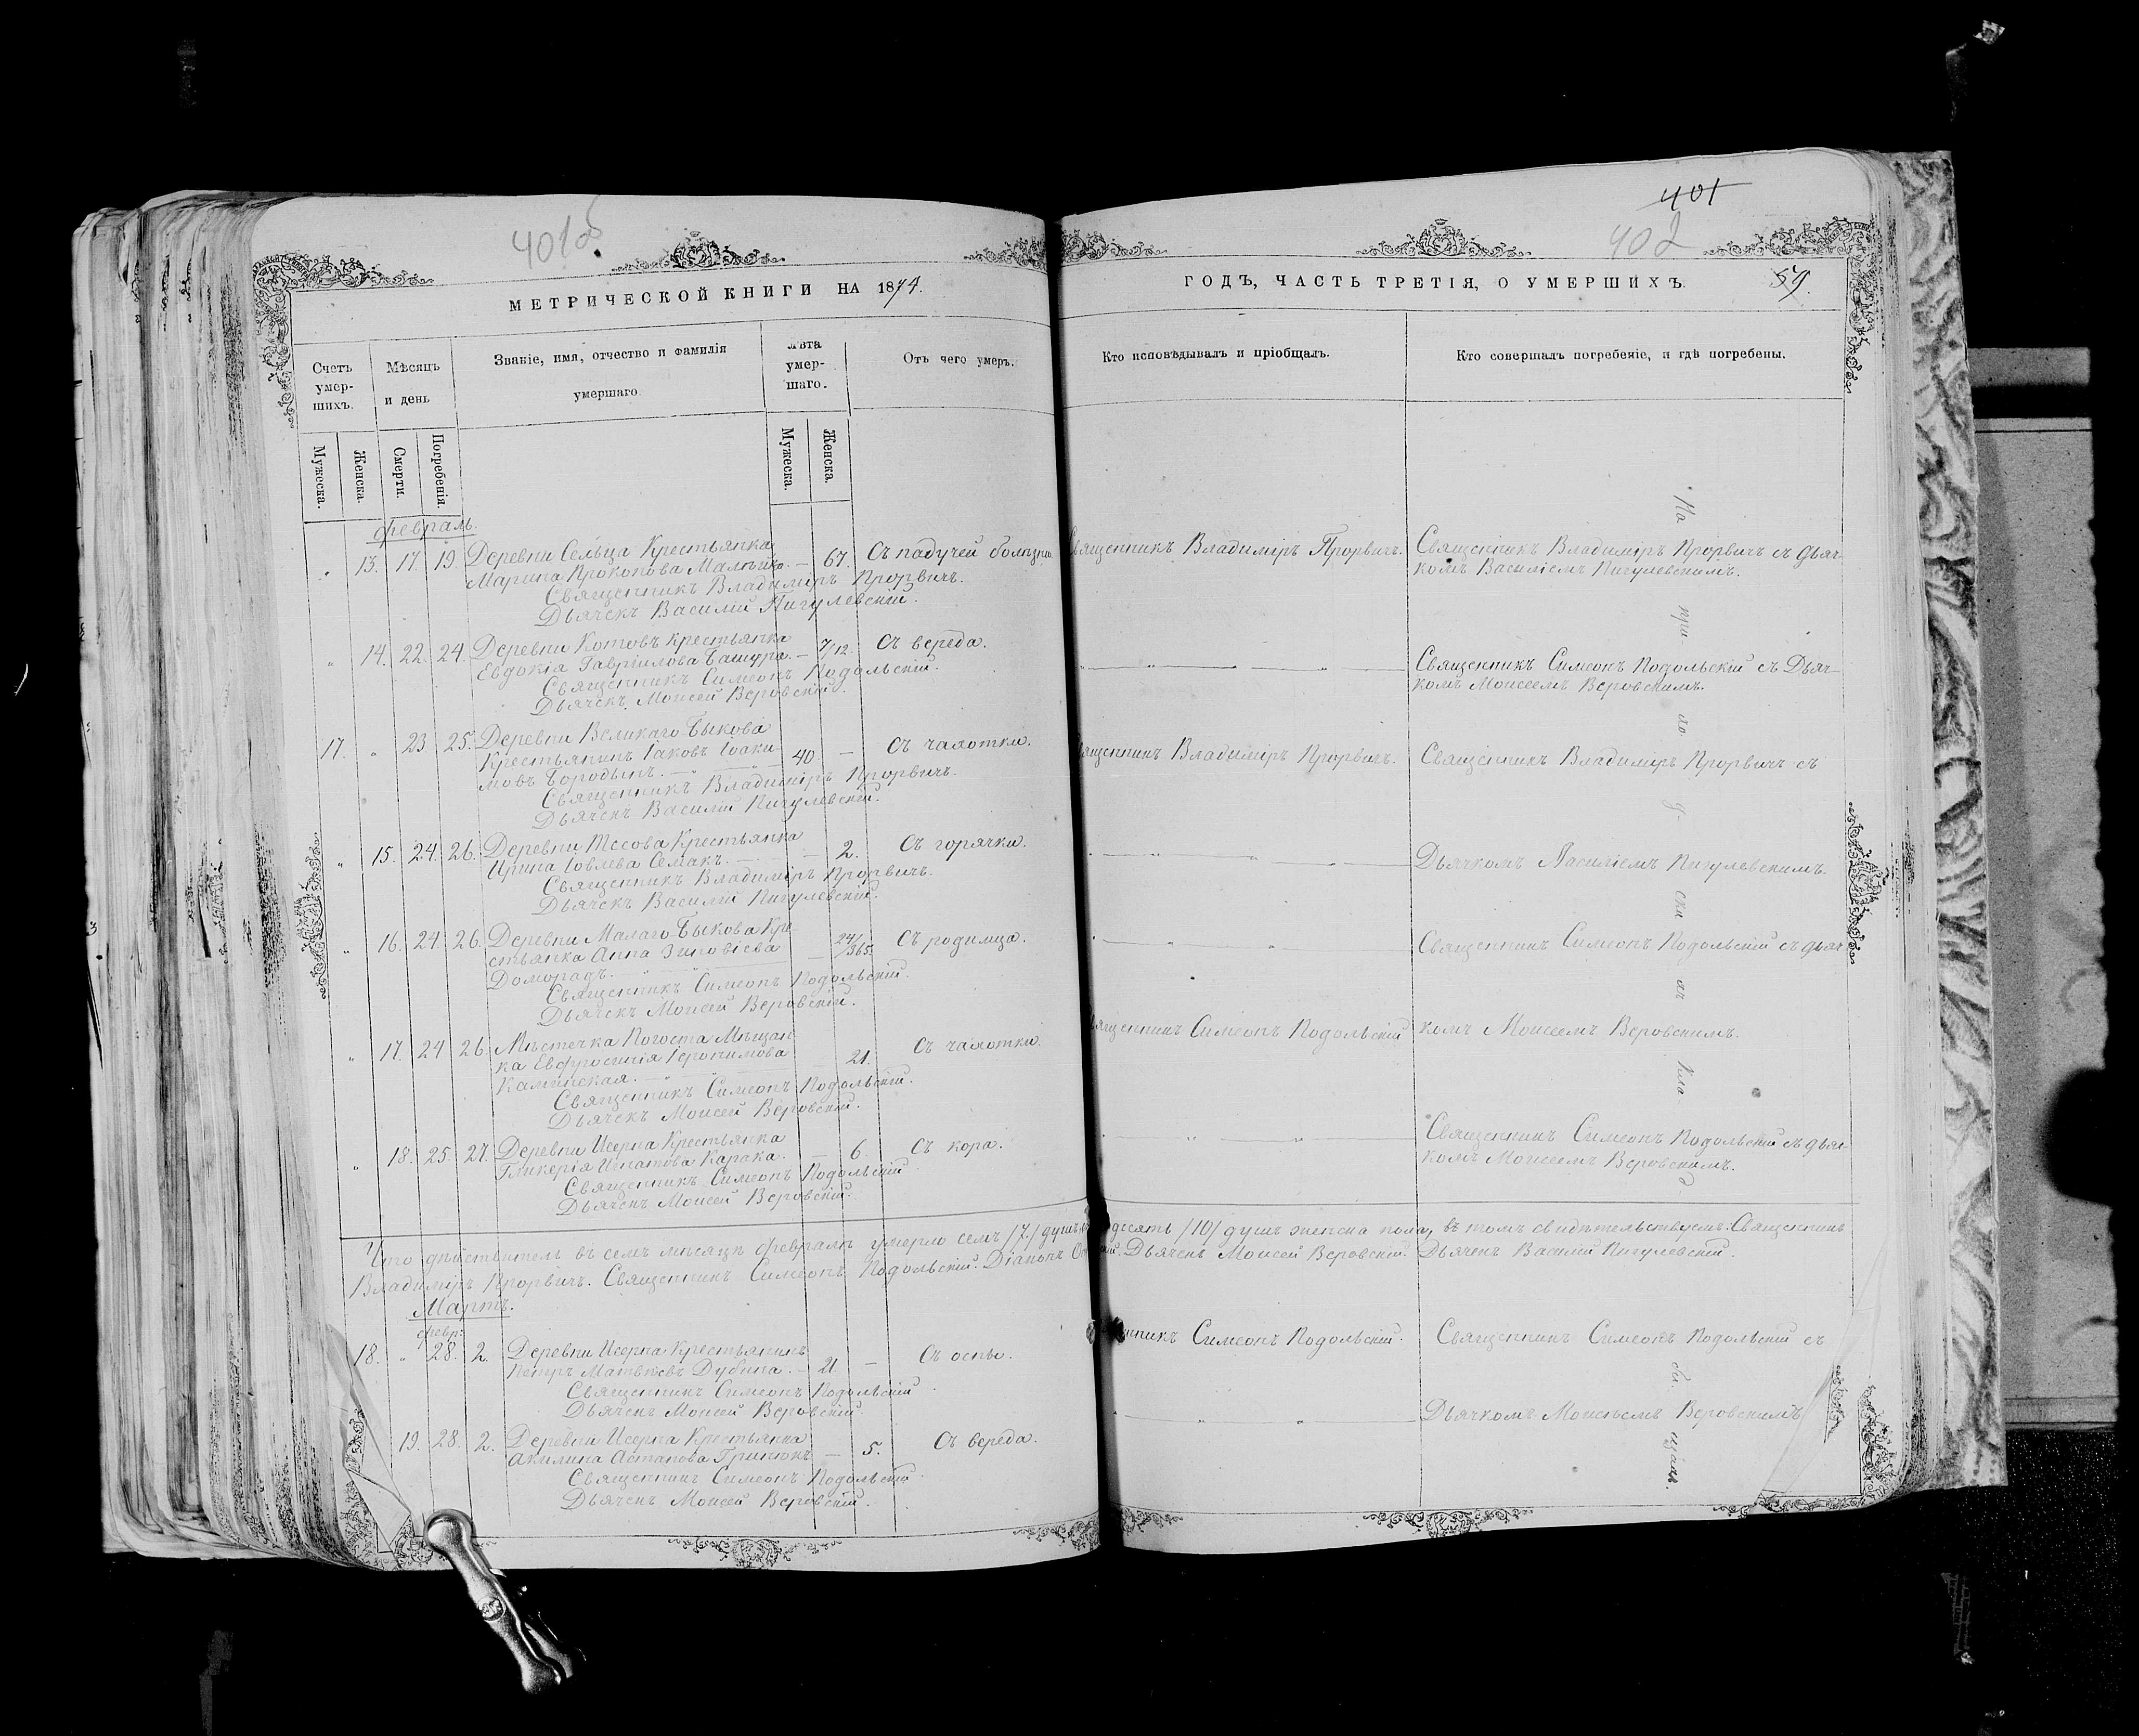 401об
401
402
МЕТРИЧЕСКОЙ КНИГИ НА 1874.
ГОДЪ, ЧАСТЬ ТРЕТІЯ, О УМЕРШИХЪ.
59.
Счетъ умер-шихъ.
Мѣсяцъ и день
Званіе, имя, отчество и фамилія умершаго
Лѣта умер-шаго.
Отъ чего умеръ.
Кто исповѣдывалъ и пріобщалъ.
Кто совершалъ погребеніе, и гдѣ погребены.
Мужеска.
Женска.
Смерти.
Погребенія.
Мужеска.
Женска.
Февраль.
" 13. 17. 19. Деревни Сельца Крестьянка
Марина Прокопова — 67. Съ падучей болѣзни
Священникъ Владиміръ Прорвичъ.
Дьячекъ Василій Пигулевскій.
Священникъ Владиміръ Прорвичъ.
Священникъ Владиміръ Прорвичъ съ Дьяч-
комъ Василіемъ Пигулевскимъ.
" 14. 22. 24. Деревни Котовъ Крестьянка
Евдокія Гавріилова Башура. — 7/12. Съ вереда.
Священникъ Симеонъ Подольскій.
Дьячекъ Моисей Веровскій.
Священникъ Симеонъ Подольскій съ Дьяч-
комъ Моисеемъ Веровскимъ.
17. " 23 25. Деревни Великаго Быкова
Крестьянинъ Іаковъ Іоаки-
мовъ Бородынъ. 40 — Съ чахотки.
Священникъ Владиміръ Прорвичъ.
Дьячекъ Василій Пигулевскій.
Священникъ Владиміръ Прорвичъ.
Священникъ Владиміръ Прорвичъ съ
" 15. 24. 26. Деревни Тесова Крестьянка
Ирина Іовлева Семакъ. — 2. Съ горячки.
Священникъ Владиміръ Прорвичъ.
Дьячекъ Василій Пигулевскій.
Дьячкомъ Василіемъ Пигулевскимъ.
" 16. 24. 26. Деревни Малаго Быкова Кре
стьянка Анна Зиновіева — 24/365. Съ родимца.
Доморадъ.
Священникъ Симеонъ Подольскій.
Дьячекъ Моисей Веровскій.
Священникъ Симеонъ Подольскій съ дьяч-
" 17. 24 26. Мѣстечка Погоста Мѣщан-
ка Евфросинія Іеронимова 21. Съ чахотки.
Каминская.
Священникъ Симеонъ Подольскій.
Дьячекъ Моисей Веровскій.
Священникъ Симеонъ Подольскій
комъ Моисеемъ Веровскимъ.
" 18. 25. 27. Деревни Исерна Крестьянка
Гликерія Игнатова Карака. — 6. Съ кора.
Священникъ Симеонъ Подольскій
Дьячекъ Моисей Веровскій.
Священникъ Симеонъ Подольскій съ дьяч-
комъ Моисеемъ Веровскимъ.
Что дѣйствитель въ семъ мѣсяцѣ Февралѣ умерло семь /7/ душъ десять /10/ душъ женска пола, въ томъ свидѣтельствуемъ: Священникъ
Владиміръ Прорвичъ. Священникъ Симеонъ Подольскій. Діаконъ Дьячекъ Моисей Веровскій. Дьячекъ Василій Пигулевскій.
Мартъ.
февр:
18. " 28. 2. Деревни Исерна Крестьянинъ
Петръ Матвѣевъ Дубина. 21 — Съ оспы.
Священникъ Симеонъ Подольскій
Дьячекъ Моисей Веровскій.
Священникъ Симеонъ Подольскій.
Священникъ Симеонъ Подольскій съ
19. 28. 2. Деревни Исерна Крестьянка
Акилина Астапова Гринюкъ — 5. Съ вереда.
Священникъ Симеонъ Подольскій
Дьячекъ Моисей Веровскій.
Дьячкомъ Моисеемъ Веровскимъ
На
при